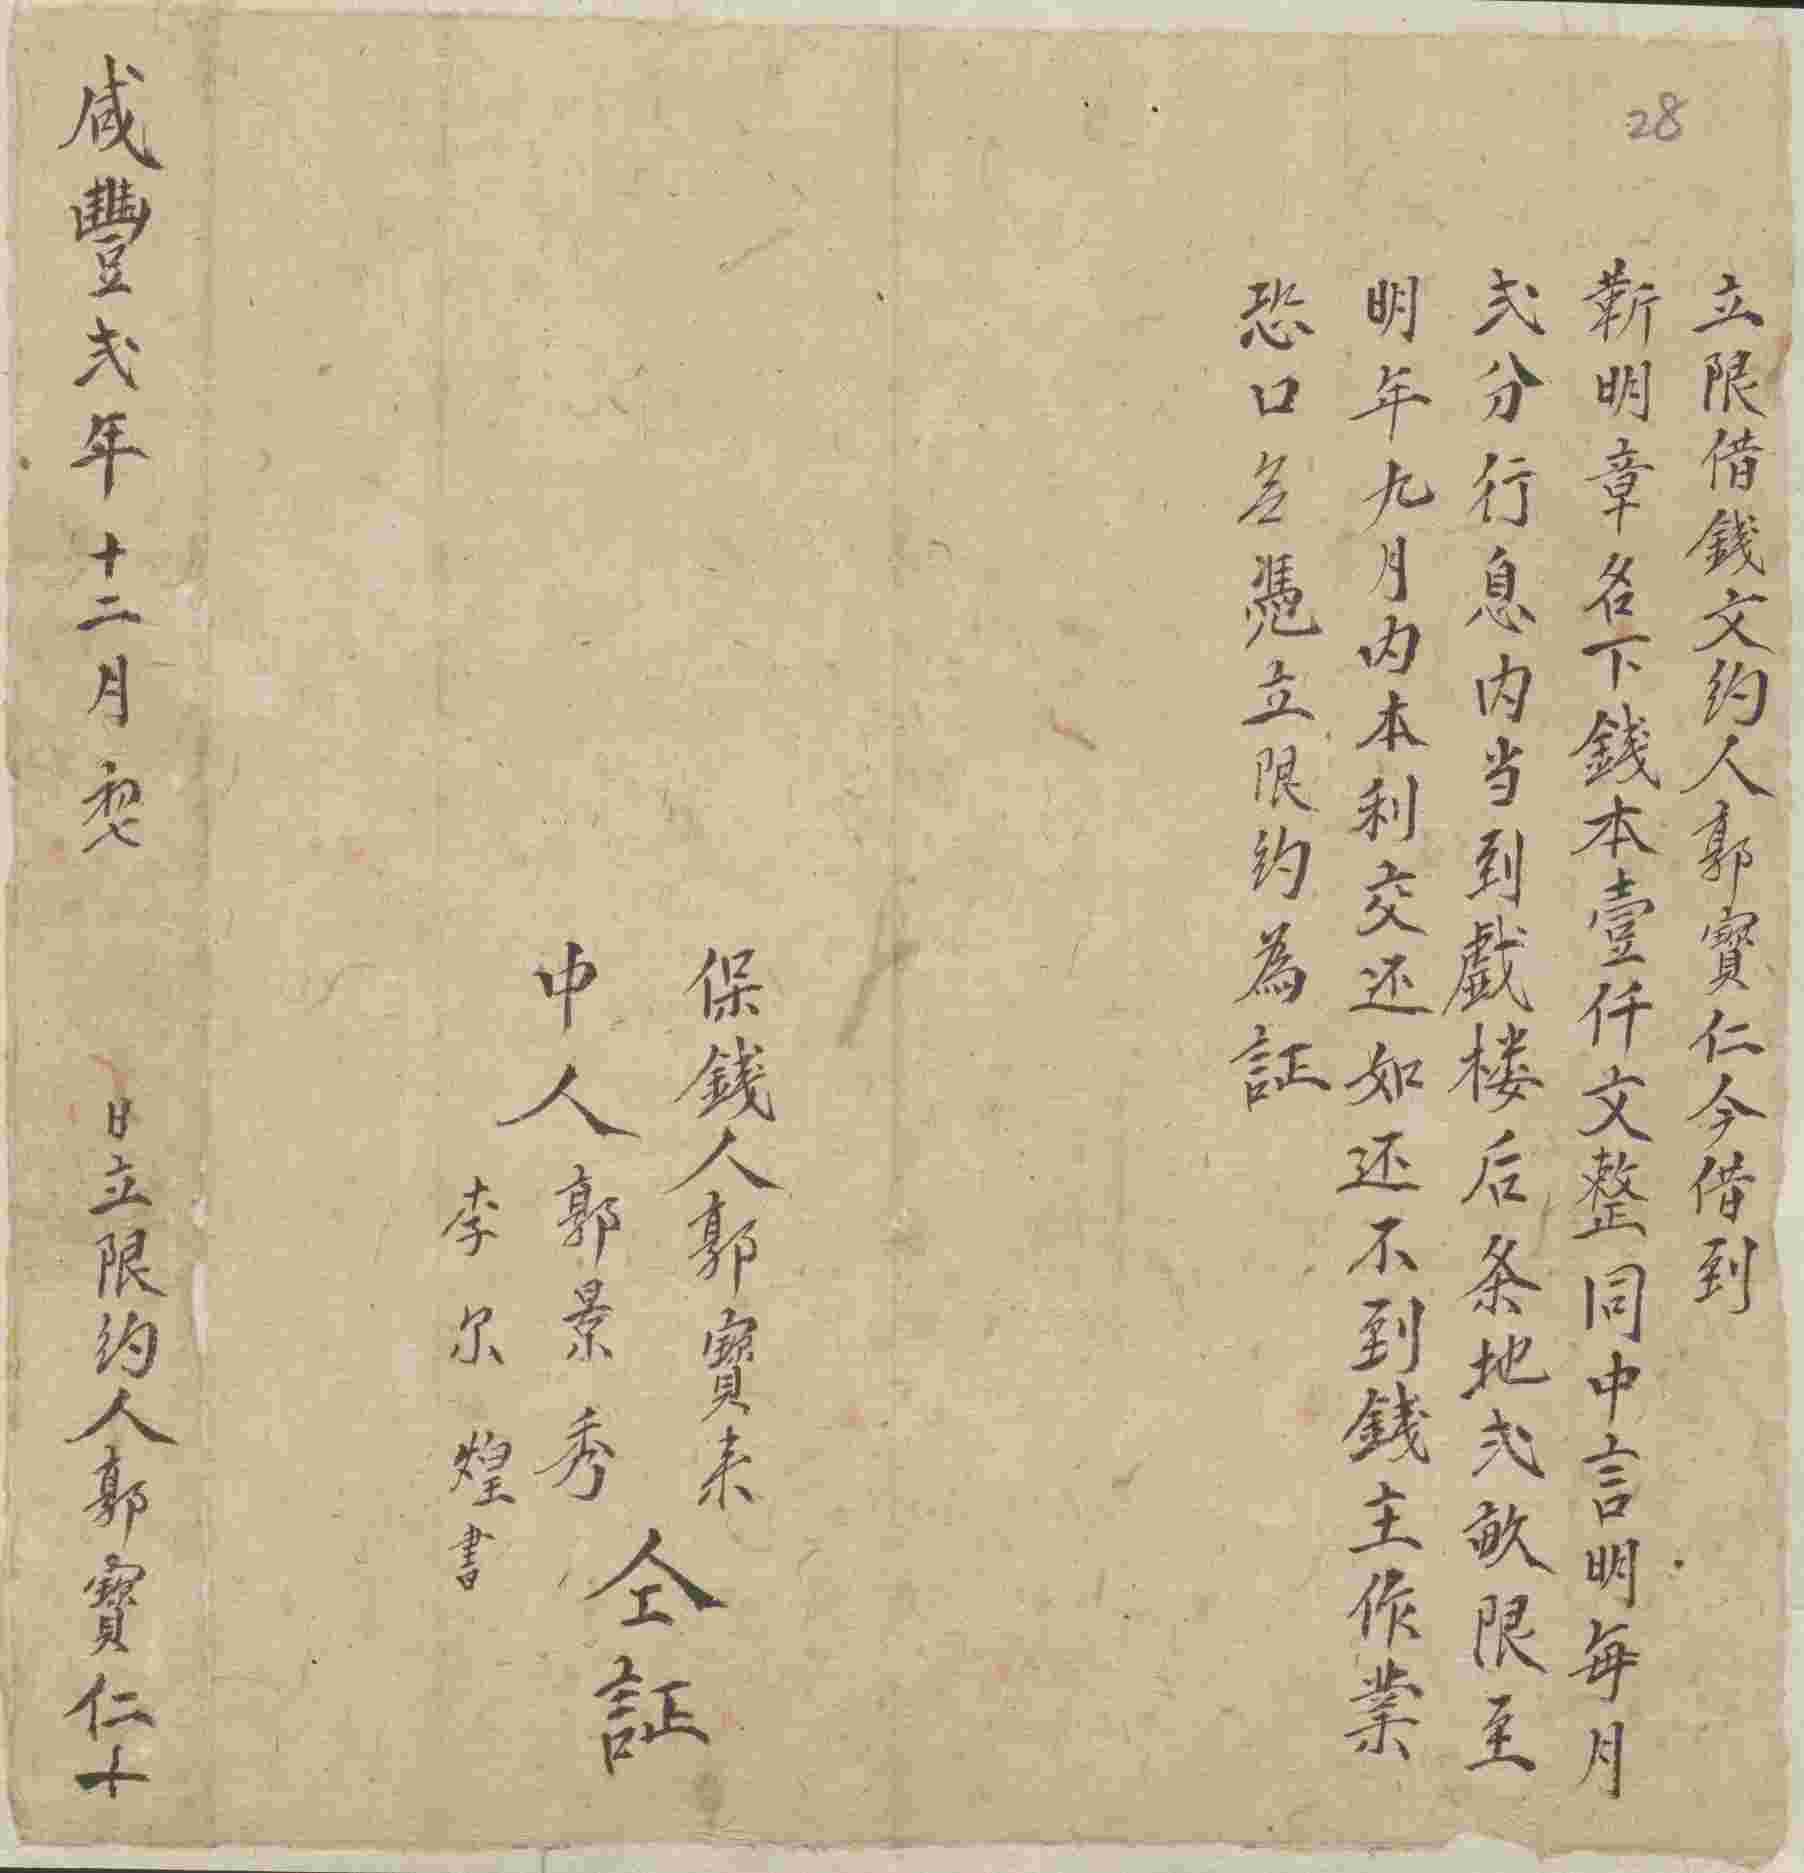 28
立限借錢文約人郭寳仁今借到
靳明章名下錢本壹仟文整同中言明每月
弍分行息内当到戲楼后条地弍畝限至
明年九月内本利交还如还不到錢主作業
恐口无憑立限约為証
保錢人郭寳来
中人郭景秀
仝証
李尔煌書
咸豐弍年十二月初七日立限约人郭寳仁十